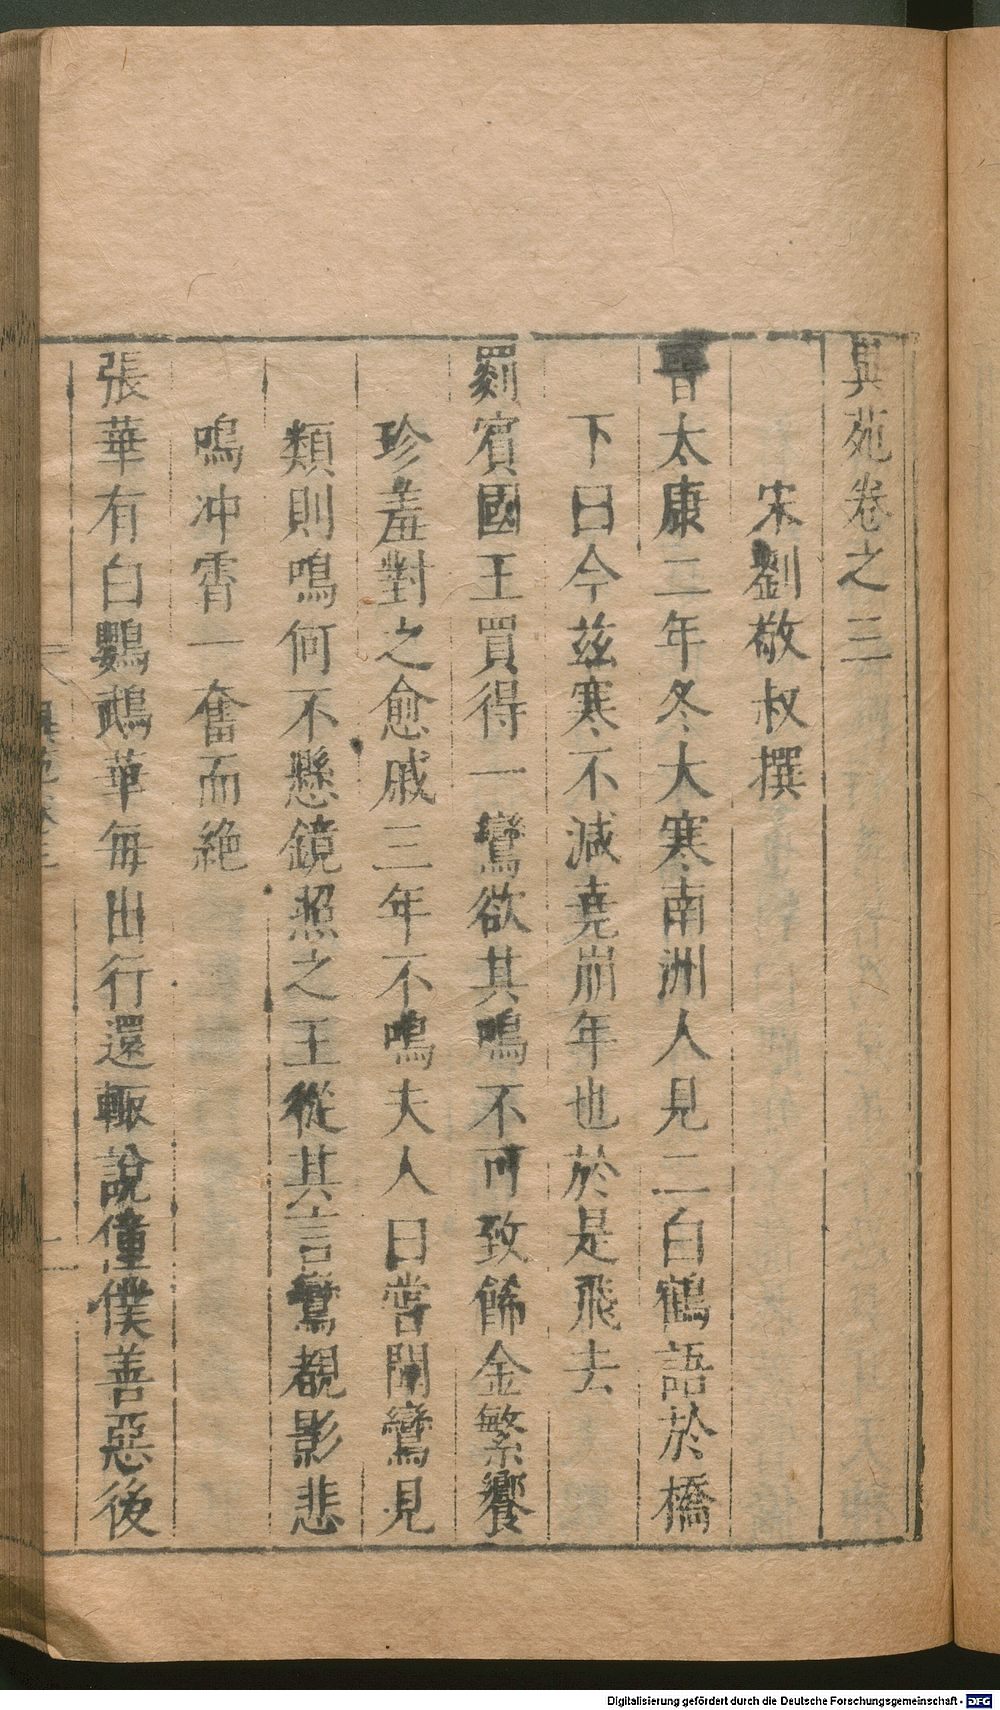 異苑卷之三
宋劉敬叔撰
晉太康二年冬大寒南洲人見二白鶴語於橋
下曰今茲寒不減堯崩年也於是飛去
罽賓國王買得一鸞欲其鳴不可致飾金繁饗
珍羞對之愈戚三年不鳴夫人曰嘗聞鸞見
類則鳴何不懸鏡照之王從其言鸞覩影悲
鳴冲霄一奮而絶
張華有白鸚鵡華每出行還輒說僮僕善惡後
異苑卷三
一
Digitalisierung gefördert durch die Deutsche Forschungsgemeinschaft - DFG